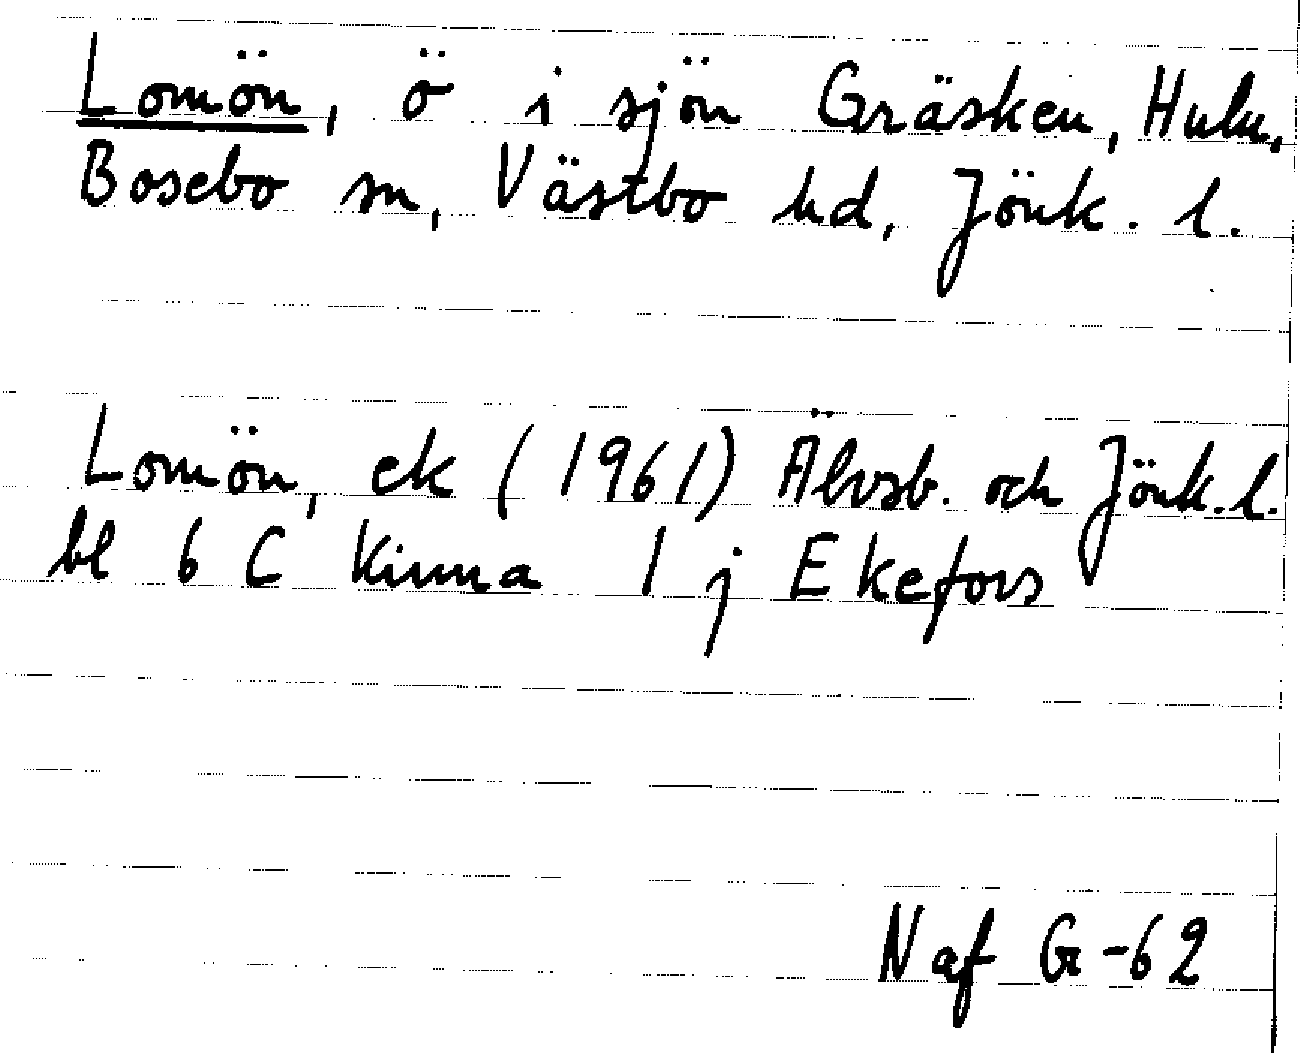 Lomön, ö i sjön Gräsken, Hulu,
Bosebo sn, Västbo hd, Jönk. l.
Lomön, ek (1961) Älvsb. och Jönk. l.
bl 6 C Kinna 1 j Ekefors
Naf G-62